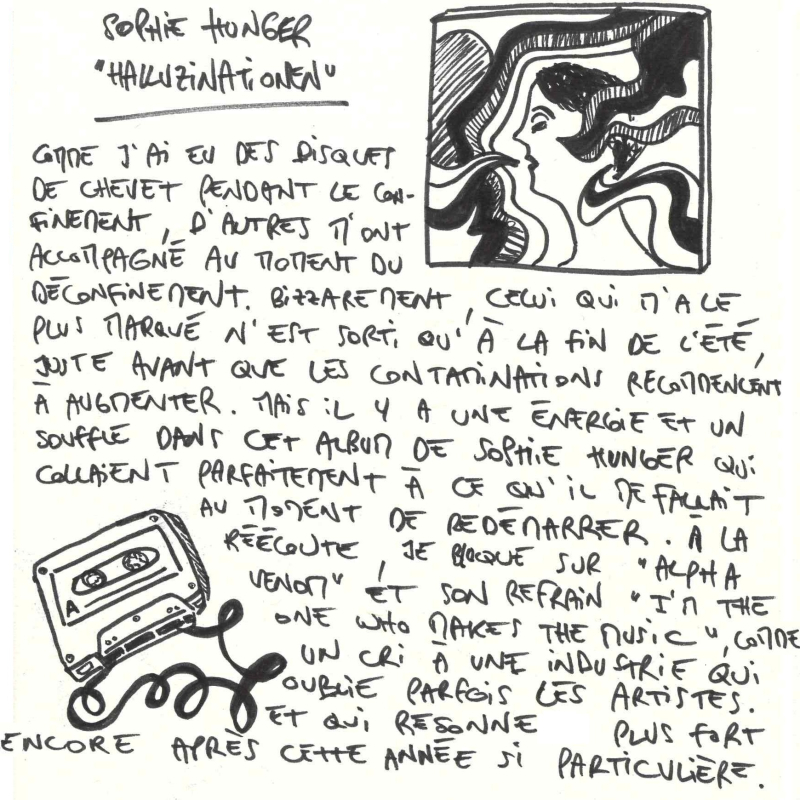 SOPHIE HUNGER
"HALLUZINATIONEN"
COMME J'AI EU DES DISQUES
DE CHEVET PENDANT LE CON-
FINEMENT, D'AUTRES M'ONT
ACCOMPAGNÉ AU MOMENT DU
DÉCONFINEMENT. BIZZAREMENT, CELUI QUI M'A LE
PLUS MARQUÉ N'EST SORTI QU'À LA FIN DE L'ÉTÉ,
JUSTE AVANT QUE LES CONTAMINATIONS RECOMMENCENT
À AUGMENTER. MAIS IL Y A UNE ÉNERGIE ET UN
SOUFFLE DANS CET ALBUM DE SOPHIE HUNGER QUI
COLLAIENT PARFAITEMENT À CE QU'IL ME FALLAIT
AU MOMENT DE REDÉMARRER. À LA
RÉÉCOUTE, JE BLOQUE SUR "ALPHA
VENOM" ET SON REFRAIN "I'M THE
ONE WHO MAKES THE MUSIC", COMME
UN CRI À UNE INDUSTRIE QUI
OUBLIE PARFOIS LES ARTISTES.
ET QUI RESONNE PLUS FORT
ENCORE APRÈS CETTE ANNÉE SI PARTICULIÈRE.
A